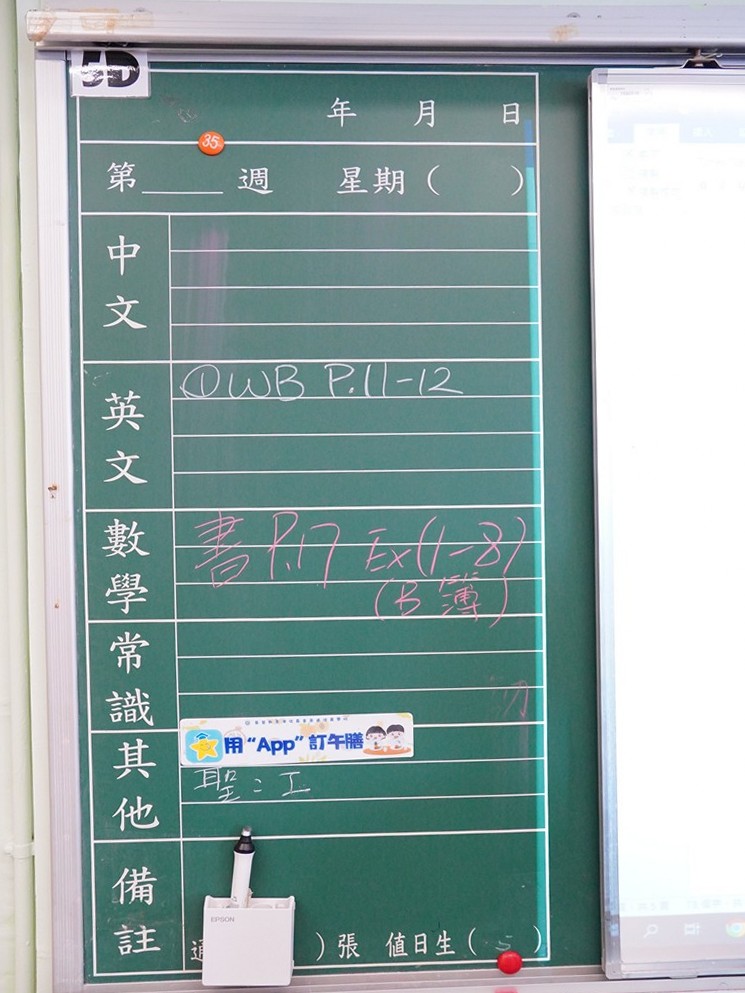 5D
年 月 日
35
第____週 星期( )
中文
英文
①WB P.11-12
數學
書 P.17 Ex(1-8)
(B 簿)
常識
其他
用“App”訂午膳
聖: 工
備註
)張 值日生( 5 )
EPSON